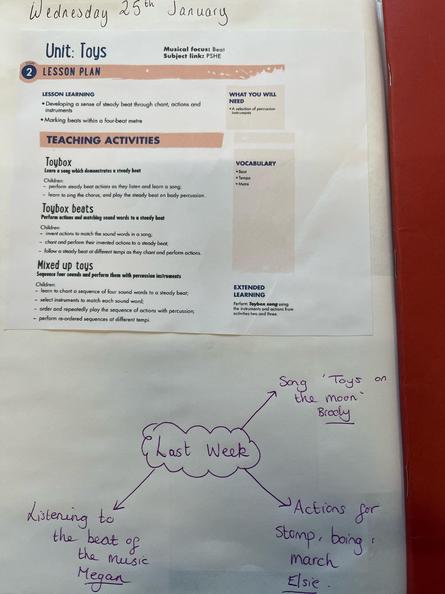 Wednesday 25th January
Unit: Toys
Musical focus: Beat
Subject link: PSHE
2 LESSON PLAN
LESSON LEARNING
• Developing a sense of steady beat through chant, actions and
instruments
• Marking beats within a four-beat metre
WHAT YOU WILL
NEED
• A selection of percussion
instruments
TEACHING ACTIVITIES
Toybox
Learn a song which demonstrates a steady beat
Children:
– perform steady beat actions as they listen and learn a song;
– learn to sing the chorus, and play the steady beat on body percussion.
Toybox beats
Perform actions and matching sound words to a steady beat
Children:
– invent actions to match the sound words in a song;
– chant and perform their invented actions to a steady beat;
– follow a steady beat at different tempi as they chant and perform actions.
Mixed up toys
Sequence four sounds and perform them with percussion instruments
Children:
– learn to chant a sequence of four sound words to a steady beat;
– select instruments to match each sound word;
– order and repeatedly play the sequence of actions with percussion;
– perform re-ordered sequences at different tempi.
VOCABULARY
• Beat
• Tempo
• Metre
EXTENDED
LEARNING
Perform Toybox song using
the instruments and actions from
activities two and three.
Last Week
Song 'Toys on
the moon'
Brody
Listening to
the beat of
the music
Megan
Actions for
Stomp, boing,
march
Elsie.